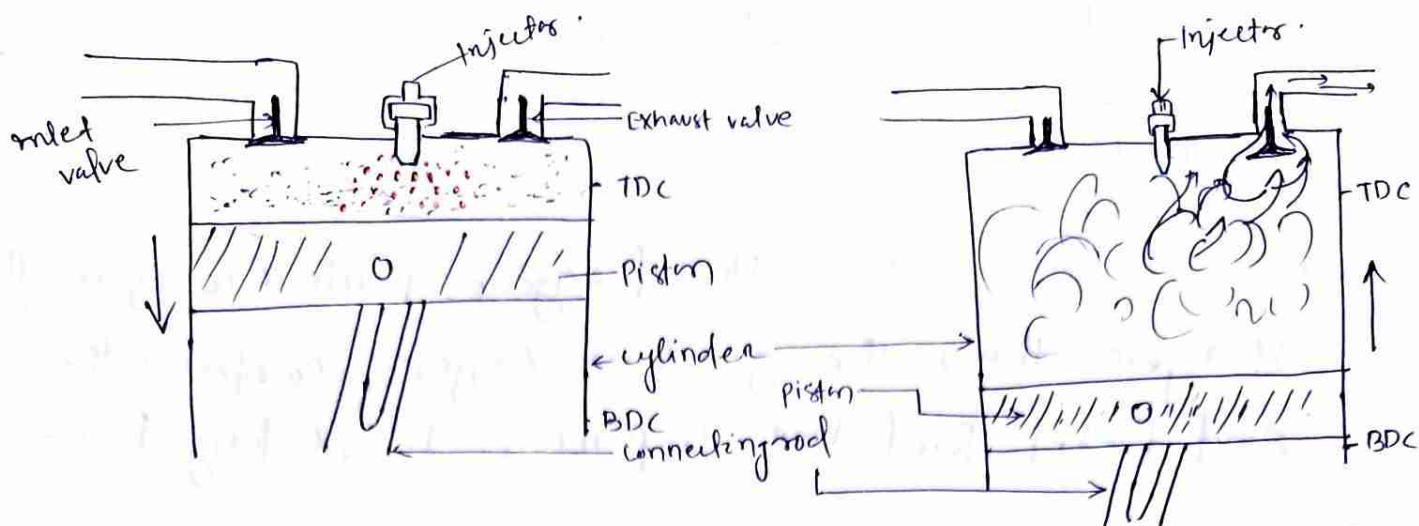 Injector.
Inlet
valve
Exhaust valve
TDC
Piston
cylinder
BDC
Connecting rod
Injector.
TDC
Piston
BDC